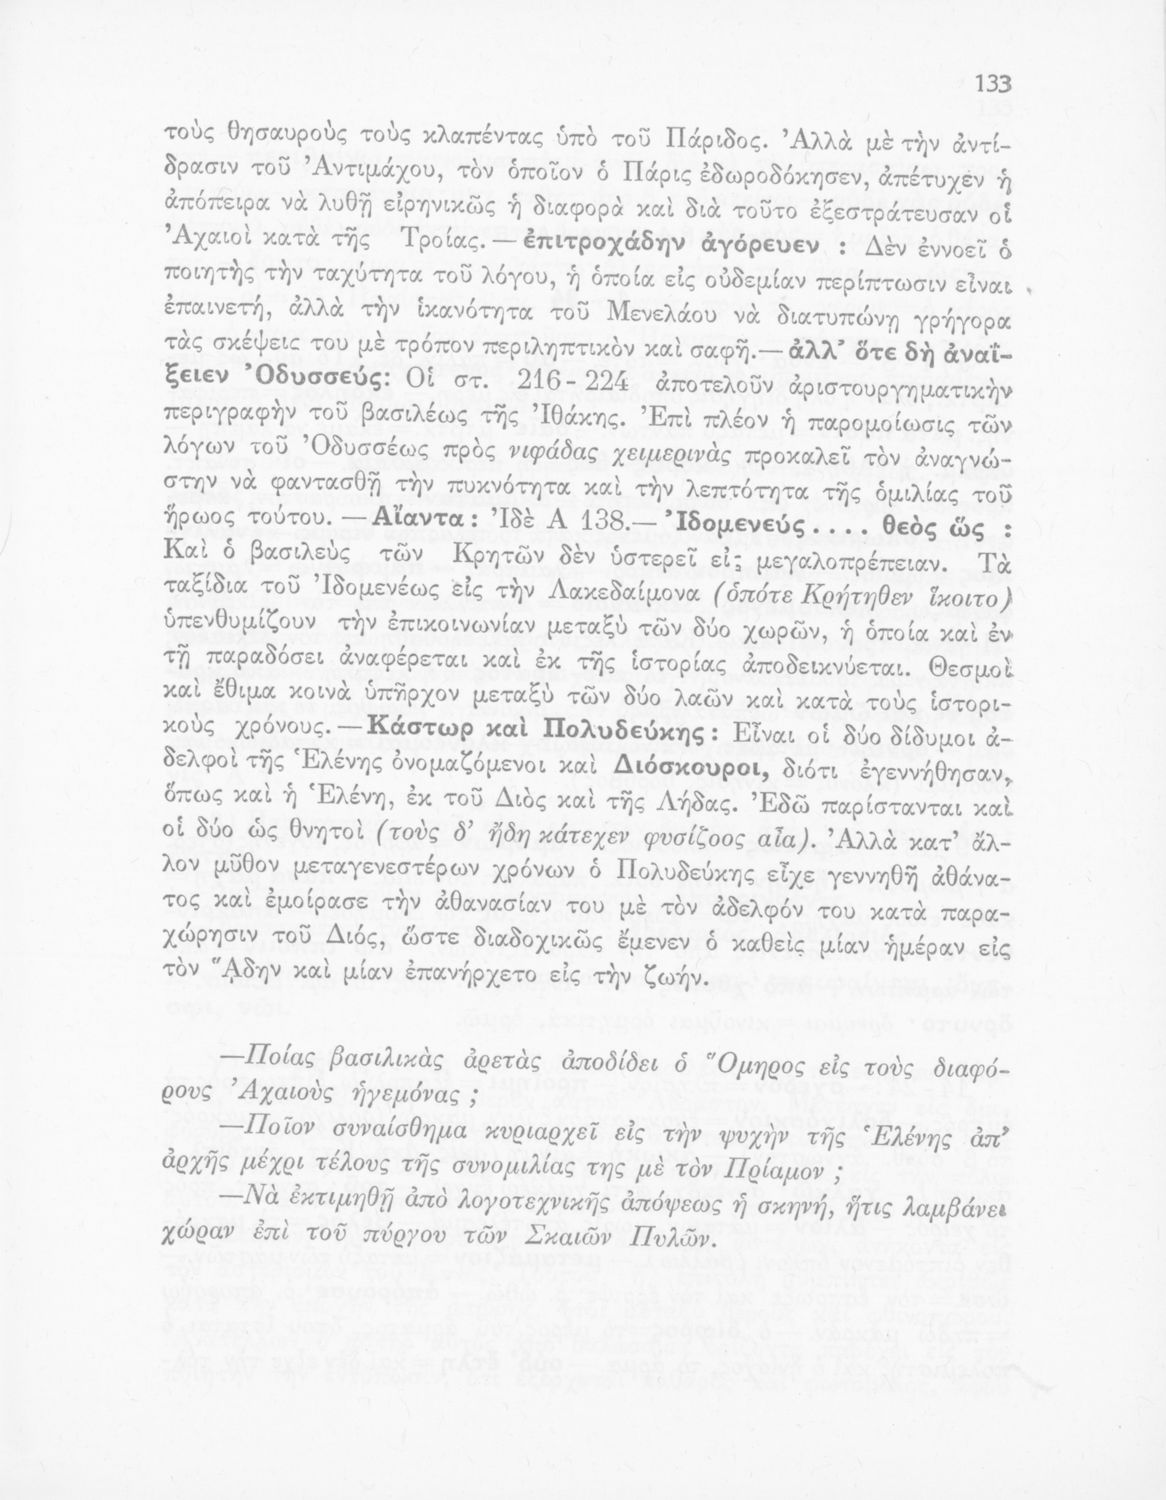 133
τοὺς θησαυροὺς τοὺς κλαπέντας ὑπὸ τοῦ Πάριδος. Ἀλλὰ μὲ τὴν ἀντί-
δρασιν τοῦ Ἀντιμάχου, τὸν ὁποῖον ὁ Πάρις ἐδωροδόκησεν, ἀπέτυχεν ἡ
ἀπόπειρα νὰ λυθῇ εἰρηνικῶς ἡ διαφορὰ καὶ διὰ τοῦτο ἐξεστράτευσαν οἱ
Ἀχαιοὶ κατὰ τῆς Τροίας. — ἐπιτροχάδην ἀγόρευεν : Δὲν ἐννοεῖ ὁ
ποιητὴς τὴν ταχύτητα τοῦ λόγου, ἡ ὁποία εἰς οὐδεμίαν περίπτωσιν εἶναι
ἐπαινετή, ἀλλὰ τὴν ἱκανότητα τοῦ Μενελάου νὰ διατυπώνῃ γρήγορα
τὰς σκέψεις του μὲ τρόπον περιληπτικὸν καὶ σαφῆ.— ἀλλ’ ὅτε δὴ ἀναΐ-
ξειεν Ὀδυσσεύς: Οἱ στ. 216 - 224 ἀποτελοῦν ἀριστουργηματικὴν
περιγραφὴν τοῦ βασιλέως τῆς Ἰθάκης. Ἐπὶ πλέον ἡ παρομοίωσις τῶν
λόγων τοῦ Ὀδυσσέως πρὸς νιφάδας χειμερινὰς προκαλεῖ τὸν ἀναγνώ-
στην νὰ φαντασθῇ τὴν πυκνότητα καὶ τὴν λεπτότητα τῆς ὁμιλίας τοῦ
ἥρωος τούτου. — Αἴαντα : Ἰδὲ Α 138.— Ἰδομενεύς .... θεὸς ὣς :
Καὶ ὁ βασιλεὺς τῶν Κρητῶν δὲν ὑστερεῖ εἰς μεγαλοπρέπειαν. Τὰ
ταξίδια τοῦ Ἰδομενέως εἰς τὴν Λακεδαίμονα (ὁπότε Κρήτηθεν ἵκοιτο)
ὑπενθυμίζουν τὴν ἐπικοινωνίαν μεταξὺ τῶν δύο χωρῶν, ἡ ὁποία καὶ ἐν
τῇ παραδόσει ἀναφέρεται καὶ ἐκ τῆς ἱστορίας ἀποδεικνύεται. Θεσμοὶ
καὶ ἔθιμα κοινὰ ὑπῆρχον μεταξὺ τῶν δύο λαῶν καὶ κατὰ τοὺς ἱστορι-
κοὺς χρόνους. — Κάστωρ καὶ Πολυδεύκης : Εἶναι οἱ δύο δίδυμοι ἀ-
δελφοὶ τῆς Ἑλένης ὀνομαζόμενοι καὶ Διόσκουροι, διότι ἐγεννήθησαν,
ὅπως καὶ ἡ Ἑλένη, ἐκ τοῦ Διὸς καὶ τῆς Λήδας. Ἐδῶ παρίστανται καὶ
οἱ δύο ὡς θνητοὶ (τοὺς δ’ ἤδη κάτεχεν φυσίζοος αἶα). Ἀλλὰ κατ’ ἄλ-
λον μῦθον μεταγενεστέρων χρόνων ὁ Πολυδεύκης εἶχε γεννηθῆ ἀθάνα-
τος καὶ ἐμοίρασε τὴν ἀθανασίαν του μὲ τὸν ἀδελφόν του κατὰ παρα-
χώρησιν τοῦ Διός, ὥστε διαδοχικῶς ἔμενεν ὁ καθεὶς μίαν ἡμέραν εἰς
τὸν Ἅδην καὶ μίαν ἐπανήρχετο εἰς τὴν ζωήν.
—Ποίας βασιλικὰς ἀρετὰς ἀποδίδει ὁ Ὅμηρος εἰς τοὺς διαφό-
ρους Ἀχαιοὺς ἡγεμόνας ;
—Ποῖον συναίσθημα κυριαρχεῖ εἰς τὴν ψυχὴν τῆς Ἑλένης ἀπ’
ἀρχῆς μέχρι τέλους τῆς συνομιλίας της μὲ τὸν Πρίαμον ;
—Νὰ ἐκτιμηθῇ ἀπὸ λογοτεχνικῆς ἀπόψεως ἡ σκηνή, ἥτις λαμβάνει
χώραν ἐπὶ τοῦ πύργου τῶν Σκαιῶν Πυλῶν.